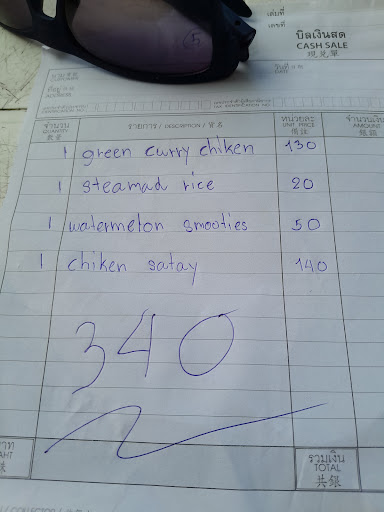 เล่มที่
เลขที่
บิลเงินสด
CASH SALE
現兌單
5
วันที่
DATE
จำนวน
QUANTITY
數量
รายการ / DESCRIPTION / 貨名
หน่วยละ
UNIT PRICE
價銀
จำนวนเงิน
AMOUNT
銀額
1 green curry chiken 130
1 steamad rice 20
1 watermelon smooties 50
1 chiken satay 140
340
บาท
BAHT
銖
รวมเงิน
TOTAL
共銀